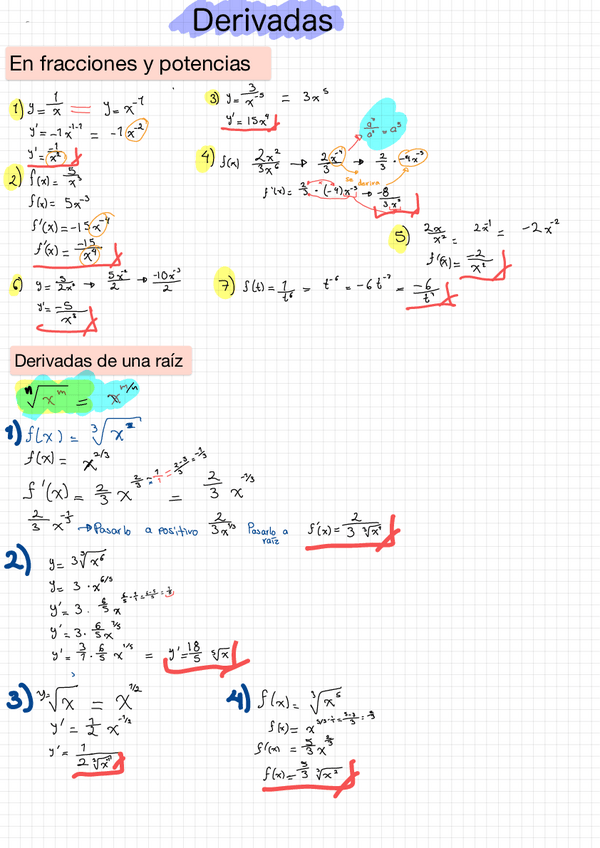 Derivadas
En fracciones y potencias
1) y = 1/x = y = x^-1
y' = -1x^-1-1 = -1x^-2
y' = -1/x²
2) f(x) = 5/x³
f(x) = 5x^-3
f'(x) = -15x^-4
f'(x) = -15/x^4
3) y = 3/x^-5 = 3x^5
y' = 15x^4
4) f(x) 2x²/3x^6 → 2x^-4/3 → 2/3 · -4x^-5
se deriva
f'(x) = 2/3 · (-4)x^-5 → -8/3x^5
5) 2x/x² = 2x^-1 = -2x^-2
f'(x) = -2/x²
6) y = 5/2x² → 5x^-2/2 → -10x^-3/2
y' = -5/x³
7) f(t) = 1/t^6 = t^-6 = -6t^-7 = -6/t^7
Derivadas de una raíz
n√x^m = x^m/n
1) f(x) = ³√x²
f(x) = x^2/3
f'(x) = 2/3 x^2/3-1/1=2-3/3=-1/3 = 2/3 x^-1/3
2/3 x^-1/3 → Pasarlo a positivo 2/3x^1/3 Pasarlo a raíz f'(x) = 2/3 ³√x
2) y = 3 ⁵√x^6
y = 3 · x^6/5
y' = 3 · 6/5 x^6/5-1/1=6-5/5=1/5
y' = 3 · 6/5 x^1/5
y' = 3/1 · 6/5 x^1/5 = y' = 18/5 ⁵√x
3) y = √x = x^1/2
y' = 1/2 x^-1/2
y' = 1/2 √x
4) f(x) = ³√x^5
f(x) = x^5/3-1/1=5-3/3=2/3
f'(x) = 5/3 x^2/3
f(x) = 5/3 ³√x²